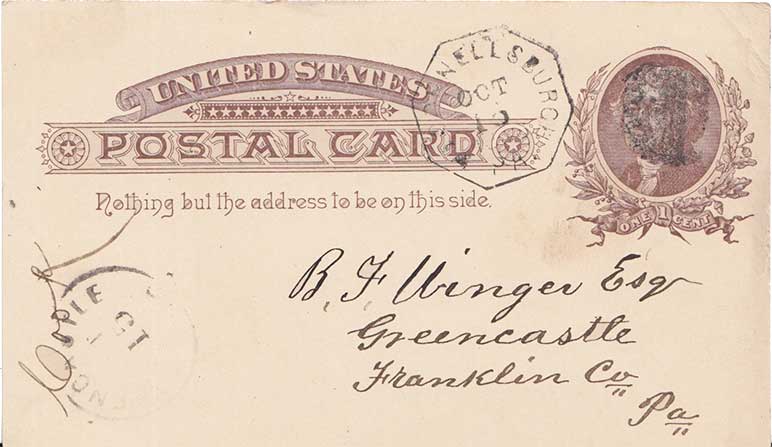 UNITED STATES
POSTAL CARD
Nothing but the address to be on this side.
NELLSBURGH
OCT
ONE 1 CENT
B F Winger Esq
Greencastle
Franklin Co
Pa
OCT